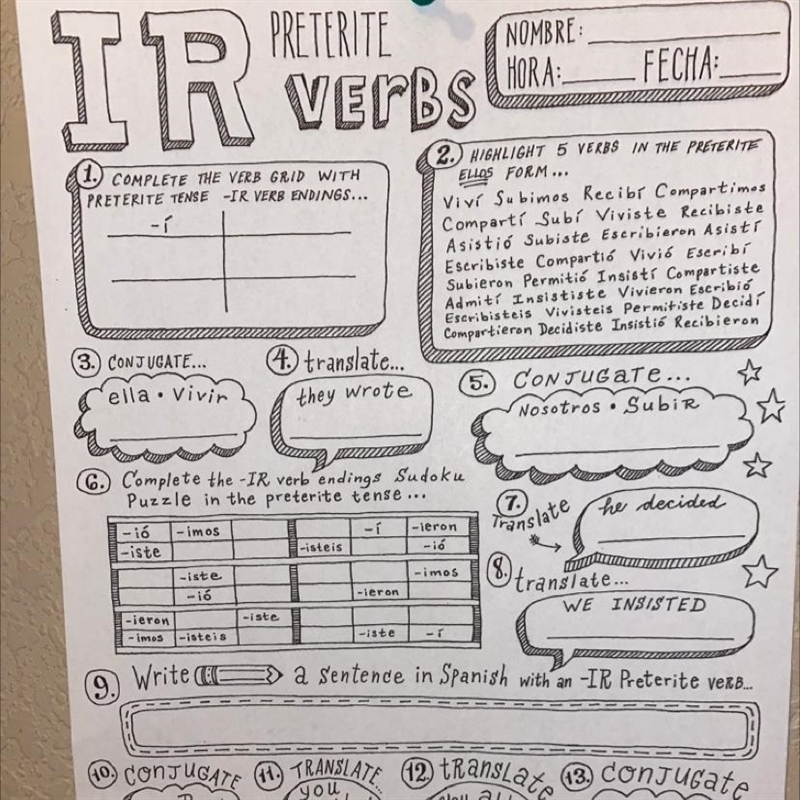 IR PRETERITE VERBS
NOMBRE:
HORA: FECHA:
1. COMPLETE THE VERB GRID WITH
PRETERITE TENSE -IR VERB ENDINGS...
-í
2. HIGHLIGHT 5 VERBS IN THE PRETERITE
ELLOS FORM...
Viví Subimos Recibí Compartimos
Compartí Subí Viviste Recibiste
Asistió Subiste Escribieron Asistí
Escribiste Compartió Vivió Escribí
Subieron Permitió Insistí Compartiste
Admití Insististe Vivieron Escribió
Escribisteis Vivisteis Permitiste Decidí
Compartieron Decidiste Insistió Recibieron
3. CONJUGATE...
ella • Vivir
4. translate...
they wrote
5. CONJUGATE...
Nosotros • SubiR
6. Complete the -IR verb endings Sudoku
Puzzle in the preterite tense...
-ió -imos -í -ieron
-iste -isteis -ió
-iste -imos
-ió -ieron
-ieron -iste
-imos -isteis -iste -í
7. Translate
he decided
8. translate...
WE INSISTED
9. Write a sentence in Spanish with an -IR Preterite verb...
10. CONJUGATE
11. TRANSLATE...
you
12. translate
13. Conjugate